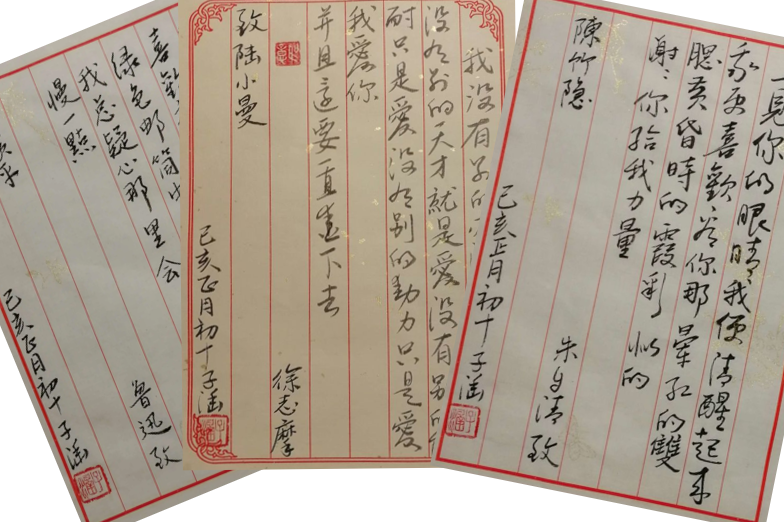 一見你的眼睛我便清醒起来
我更喜歡看你那暈红的雙
腮黄昏時的霞彩似的
謝〻你给我力量
朱自清致
陳竹隐
己亥正月初十子涵
我没有别的
没有别的天才就是愛没有另
耐只是愛没有别的動力只是愛
我愛你
并且这要一直爱下去
徐志摩
致陸小曼
己亥正月初十子涵
喜歡
绿色邮筒
我总疑心那里会
慢一點
鲁迅致
平
己亥正月初十子涵